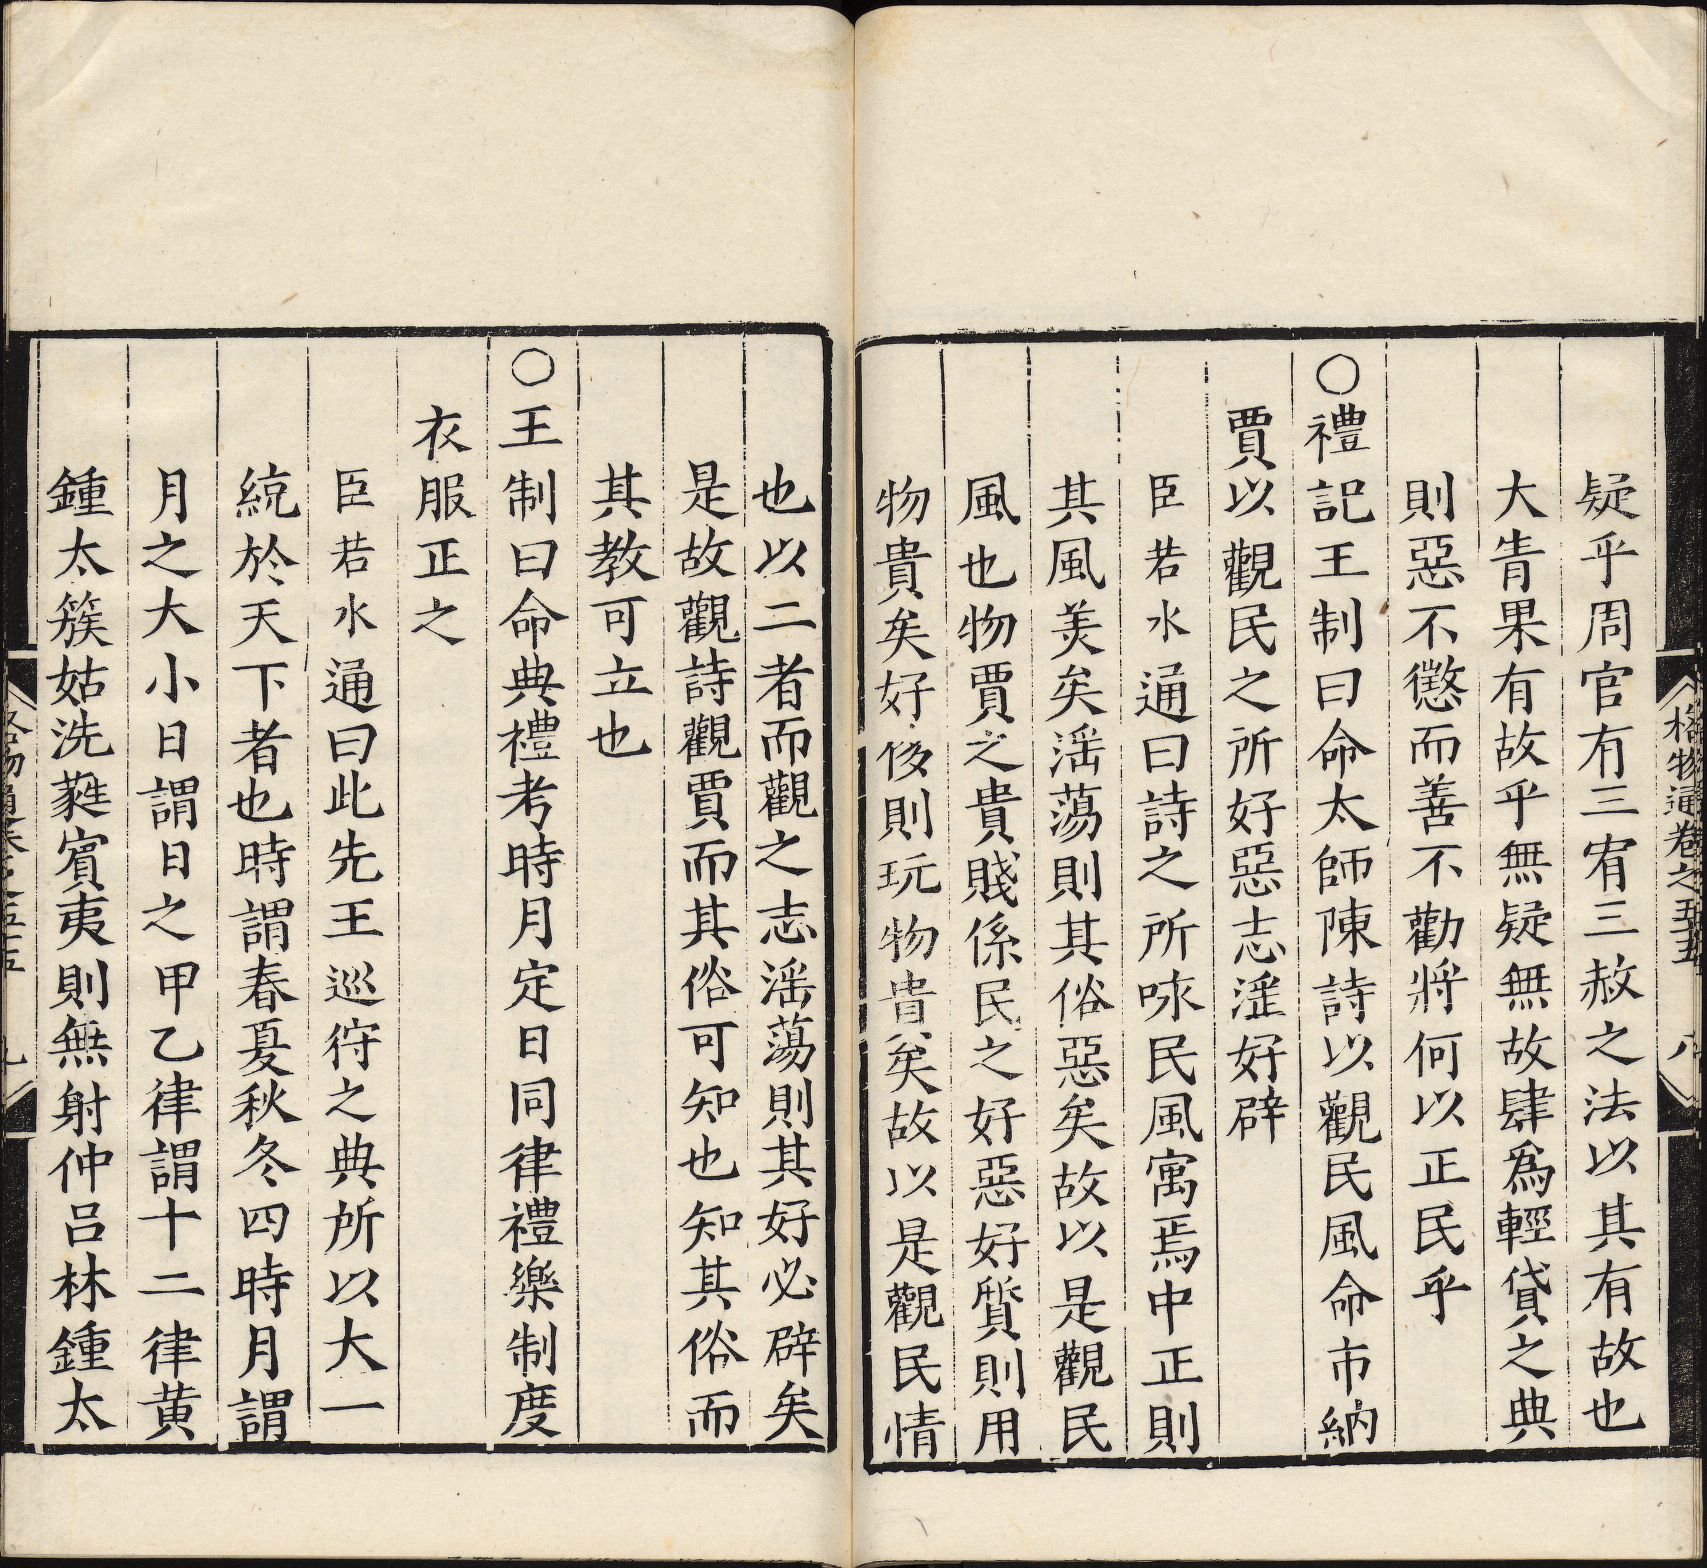 格物通卷之五十五 八
疑乎周官有三宥三赦之法以其有故也
大眚果有故乎無疑無故肆爲輕貸之典
則惡不懲而善不勸將何以正民乎
○禮記王制曰命太師陳詩以觀民風命市納
賈以觀民之所好惡志淫好辟
臣若水通曰詩之所咏民風寓焉中正則
其風美矣滛蕩則其俗惡矣故以是觀民
風也物賈之貴賤係民之好惡好質則用
物貴矣好侈則玩物貴矣故以是觀民情
也以二者而觀之志滛蕩則其好必辟矣
是故觀詩觀賈而其俗可知也知其俗而
其教可立也
○王制曰命典禮考時月定日同律禮樂制度
衣服正之
臣若水通曰此先王巡狩之典所以大一
統於天下者也時謂春夏秋冬四時月謂
月之大小日謂日之甲乙律謂十二律黄
鍾太簇姑洗蕤賓夷則無射仲呂林鍾太